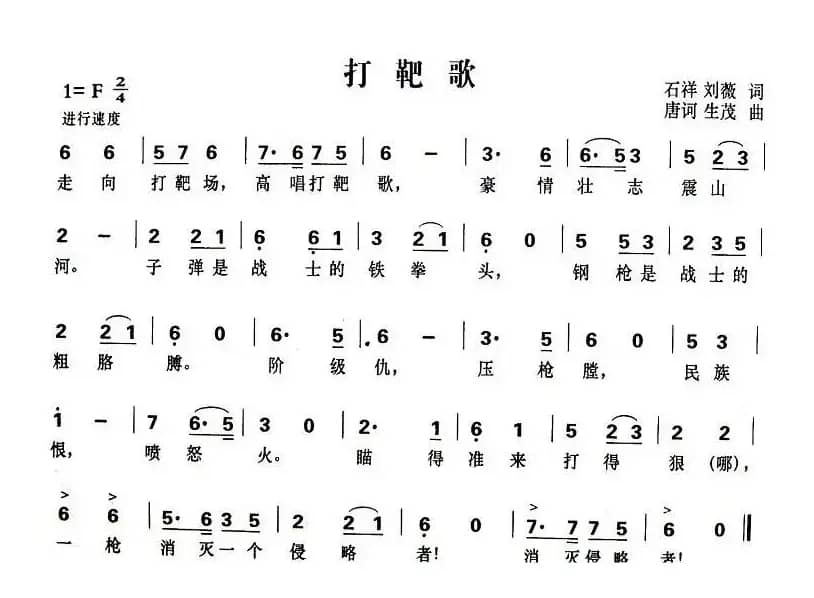 打靶歌
1= F 2/4
石祥 刘薇 词
进行速度
唐诃 生茂 曲
6 6 | 5 7 6 | 7· 6 7 5 | 6 – | 3· 6 | 6· 5 3 | 5 2 3 |
走 向 打 靶 场， 高 唱 打 靶 歌， 豪 情 壮 志 震 山
2 – | 2 2 1 | 6 6 1 | 3 2 1 | 6 0 | 5 5 3 | 2 3 5 |
河。 子 弹 是 战 士 的 铁 拳 头， 钢 枪 是 战 士 的
2 2 1 | 6 0 | 6· 5 | 6 – | 3· 5 | 6 0 | 7 6 |
粗 胳 膊。 阶 级 仇， 压 枪 膛， 民 族
1 – | 7 6· 5 | 3 0 | 2· 1 | 6 1 | 5 2 3 | 2 2 |
恨， 喷 怒 火。 瞄 得 准 来 打 得 狠 (哪)，
6 6 | 5· 6 3 5 | 2 2 1 | 6 0 | 7· 7 7 5 | 6 0 ‖
一 枪 消 灭 一 个 侵 略 者！ 消 灭 侵 略 者！